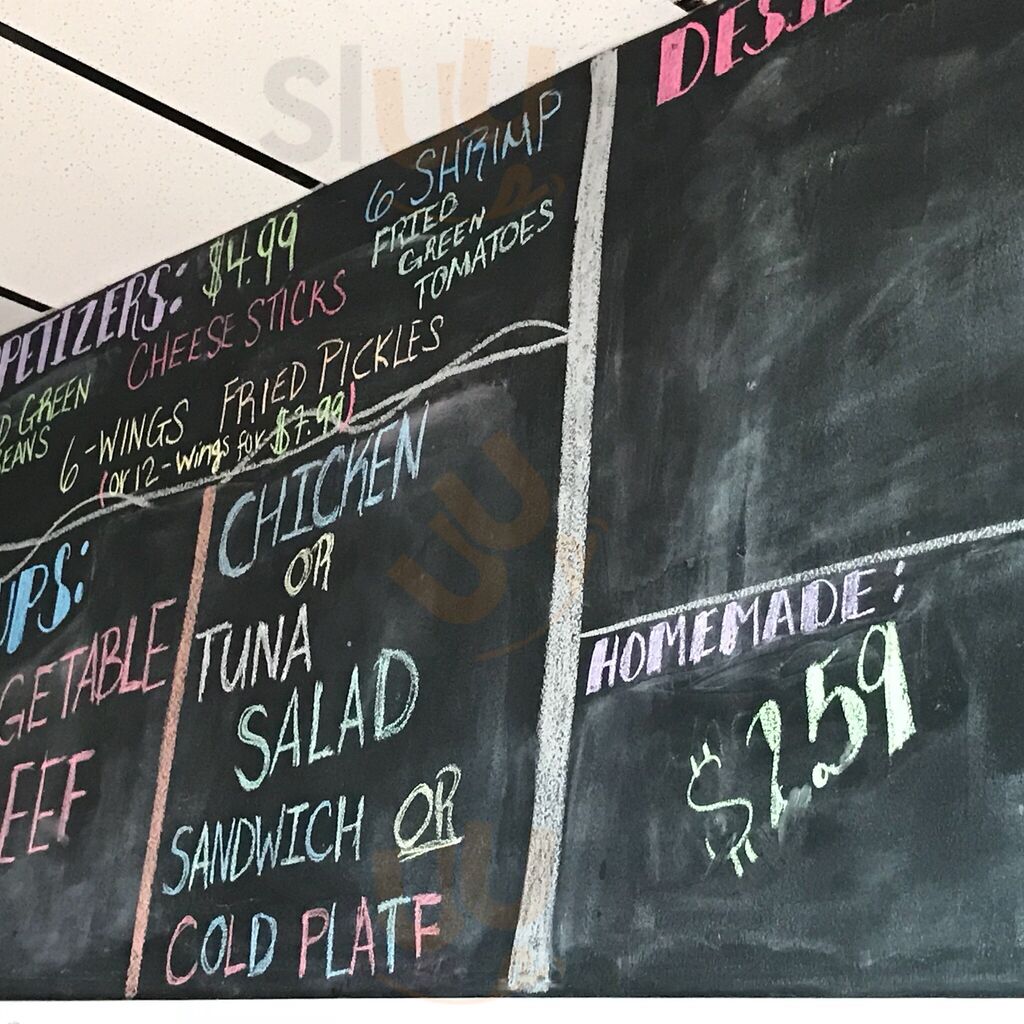 PETIZERS: $4.99
6-SHRIMP
CHEESE STICKS
FRIED
GREEN
TOMATOES
D GREEN
EANS
6-WINGS
FRIED PICKLES
(or 12-wings for $7.99)
UPS:
GETABLE
EEF
CHICKEN
OR
TUNA
SALAD
SANDWICH OR
COLD PLATE
DESSE
HOMEMADE:
$2.59